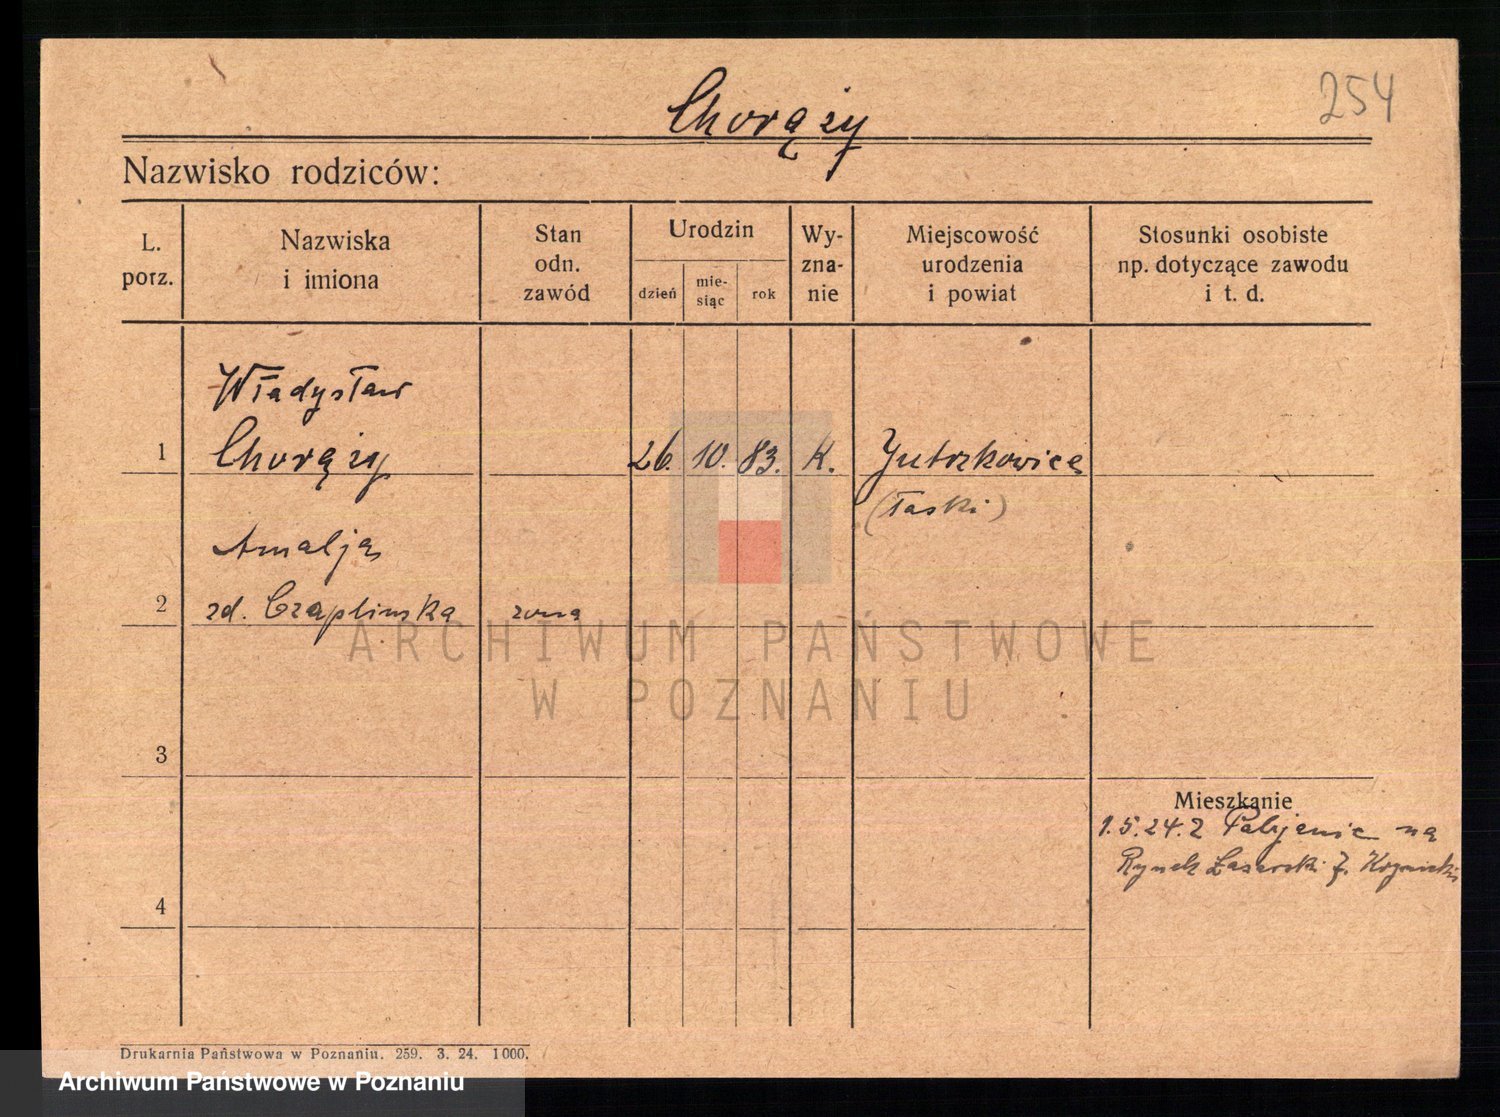 254
Chorąży
Nazwisko rodziców:
L. porz.
Nazwiska i imiona
Stan odn. zawód
Urodzin
dzień
mie-
siąc
rok
Wy-
zna-
nie
Miejscowość urodzenia i powiat
Stosunki osobiste np. dotyczące zawodu i t. d.
Władysław
1 Chorąży 26. 10. 83. K. Jutrzkowice
(Łaski)
Amalja
2 zd. Czaplinska zona
ARCHIWUM PAŃSTWOWE
W POZNANIU
3
Mieszkanie
1.5.24. z Pabjanic na
Rynek Łazarski
4
Drukarnia Państwowa w Poznaniu. 259. 3. 24. 1000.
Archiwum Państwowe w Poznaniu